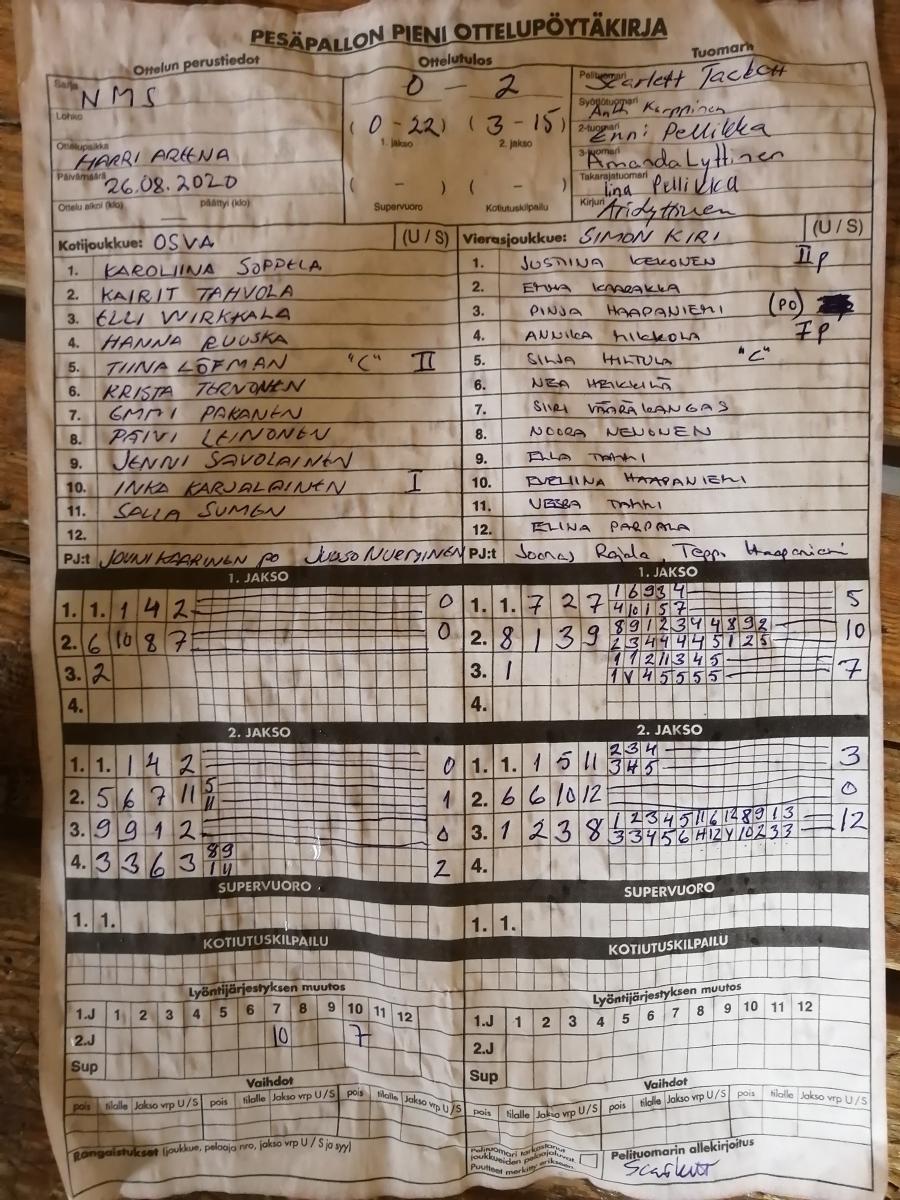 PESÄPALLON PIENI OTTELUPÖYTÄKIRJA
Ottelun perustiedot
Ottelutulos
Tuomarit
Sarja NMS
Lohko
Ottelupaikka HARRI AREENA
Päivämäärä 26.08.2020
Ottelu alkoi (klo) päättyi (klo)
0 - 2
(0-22) (3-15)
1. jakso 2. jakso
( - ) ( - )
Supervuoro Kotiutuskilpailu
Pelituomari Scarlett Tackett
Syöttötuomari Karppinen
2-tuomari Enni Pellikka
3-tuomari Amanda Lyttinen
Takarajatuomari Iina Pellikka
Kirjuri
Kotijoukkue: OSVA (U / S)
1. KAROLIINA SOPPELA
2. KAIRIT TAHVOLA
3. ELLI WIRKKALA
4. HANNA RUUSKA
5. TIINA LÖFMAN "C" II
6. KRISTA TERVONEN
7. EMMI PAKANEN
8. PÄIVI LEINONEN
9. JENNI SAVOLAINEN
10. INKA KARJALAINEN I
11. SALLA SUMEN
12.
PJ:t JOUNI KAARINEN PO JUUSO NURMINEN
Vierasjoukkue: SIMON KIRI (U / S)
1. JUSTIINA KEKONEN II p
2. EMMA KAARAKKA
3. PINJA HAAPANIEMI (PO)
4. ANNIKA MIKKOLA I p
5. SILJA HILTULA "C"
6. NEA HEIKKILÄ
7. SIIRI VÄÄRÄKANGAS
8. NOORA NENONEN
9. ELLA TAMMI
10. EVELIINA HAAPANIEMI
11. VEERA TAMMI
12. ELINA PARPALA
PJ:t Joonas Rajala, Teppo Haapaniemi
1. JAKSO
1. 1. 1 4 2 0
2. 6 10 8 7 0
3. 2
4.
1. JAKSO
1 6 9 3 4
1. 1. 7 2 7 4 10 1 5 7 5
8 9 1 2 3 4 4 8 9 2
2. 8 1 3 9 2 3 4 4 4 4 5 1 2 5 10
1 1 2 11 3 4 5
3. 1 7
4.
2. JAKSO
1. 1. 1 4 2 0
2. 5 6 7 11 5 11 1
3. 9 9 1 2 0
4. 3 3 6 3 8 9 2
2. JAKSO
2 3 4
1. 1. 1 5 11 3 4 5 3
2. 6 6 10 12 0
1 2 3 4 5 11 6 12 8 9 1 3
3. 1 2 3 8 12
4.
SUPERVUORO
1. 1.
SUPERVUORO
1. 1.
KOTIUTUSKILPAILU
KOTIUTUSKILPAILU
Lyöntijärjestyksen muutos
1.J 1 2 3 4 5 6 7 8 9 10 11 12
2.J 10 7
Sup
Lyöntijärjestyksen muutos
1.J 1 2 3 4 5 6 7 8 9 10 11 12
2.J
Sup
Vaihdot
pois tilalle Jakso vrp U / S pois tilalle Jakso vrp U / S pois tilalle Jakso vrp U / S
Vaihdot
pois tilalle Jakso vrp U / S pois tilalle Jakso vrp U / S pois tilalle Jakso vrp U / S
Rangaistukset (joukkue, pelaaja nro, jakso vrp U / S ja syy)
Pelituomari tarkastanut
joukkueiden pelaajaluvat.
Puutteet merkitty erikseen.
Pelituomarin allekirjoitus